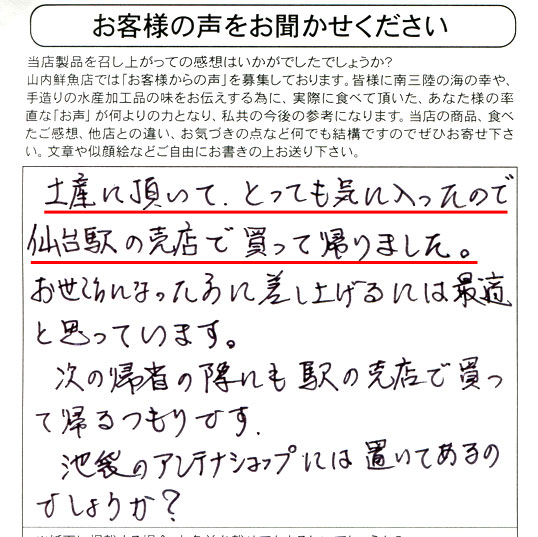 お客様の声をお聞かせください
当店製品を召し上がっての感想はいかがでしたでしょうか?
山内鮮魚店では「お客様からの声」を募集しております。皆様に南三陸の海の幸や、
手造りの水産加工品の味をお伝えする為に、実際に食べて頂いた、あなた様の率
直な「お声」が何よりの力となり、私共の今後の参考になります。当店の商品、食べ
たご感想、他店との違い、お気づきの点など何でも結構ですのでぜひお寄せ下さ
い。文章や似顔絵などご自由にお書きの上お送り下さい。
土産に頂いて、とっても気に入ったので
仙台駅の売店で買って帰りました。
お世話になった方に差し上げるには最適
と思っています。
次の帰省の際にも駅の売店で買っ
て帰るつもりです.
池袋のアンテナショップには置いてあるの
でしょうか?